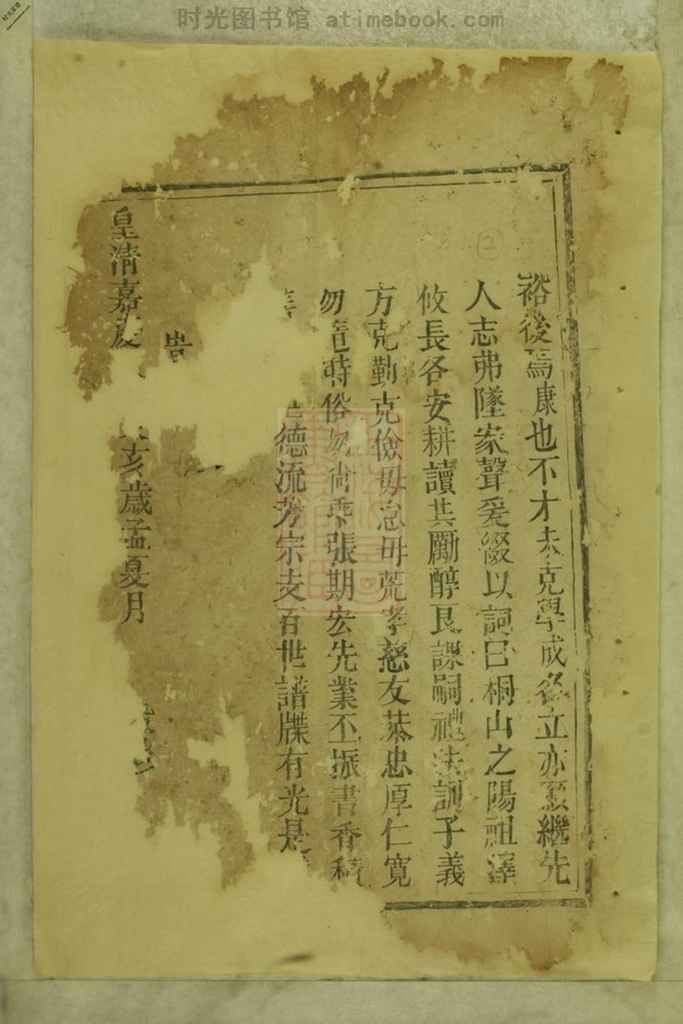 时光图书馆 atimebook.com
裕後焉康也不才未克學成名立亦惡繼先
人志弗墜家聲爰綴以詞曰桐山之陽祖澤
攸長各安耕讀其勵醇良謀嗣禮法訓子義
方克勤克儉毋怠毋荒孝慈友恭忠厚仁寬
勿 時俗勿尚 張期宏先業丕振書香
德流芳宗支百世譜牒有光是
告
皇清嘉慶 亥歲孟夏月